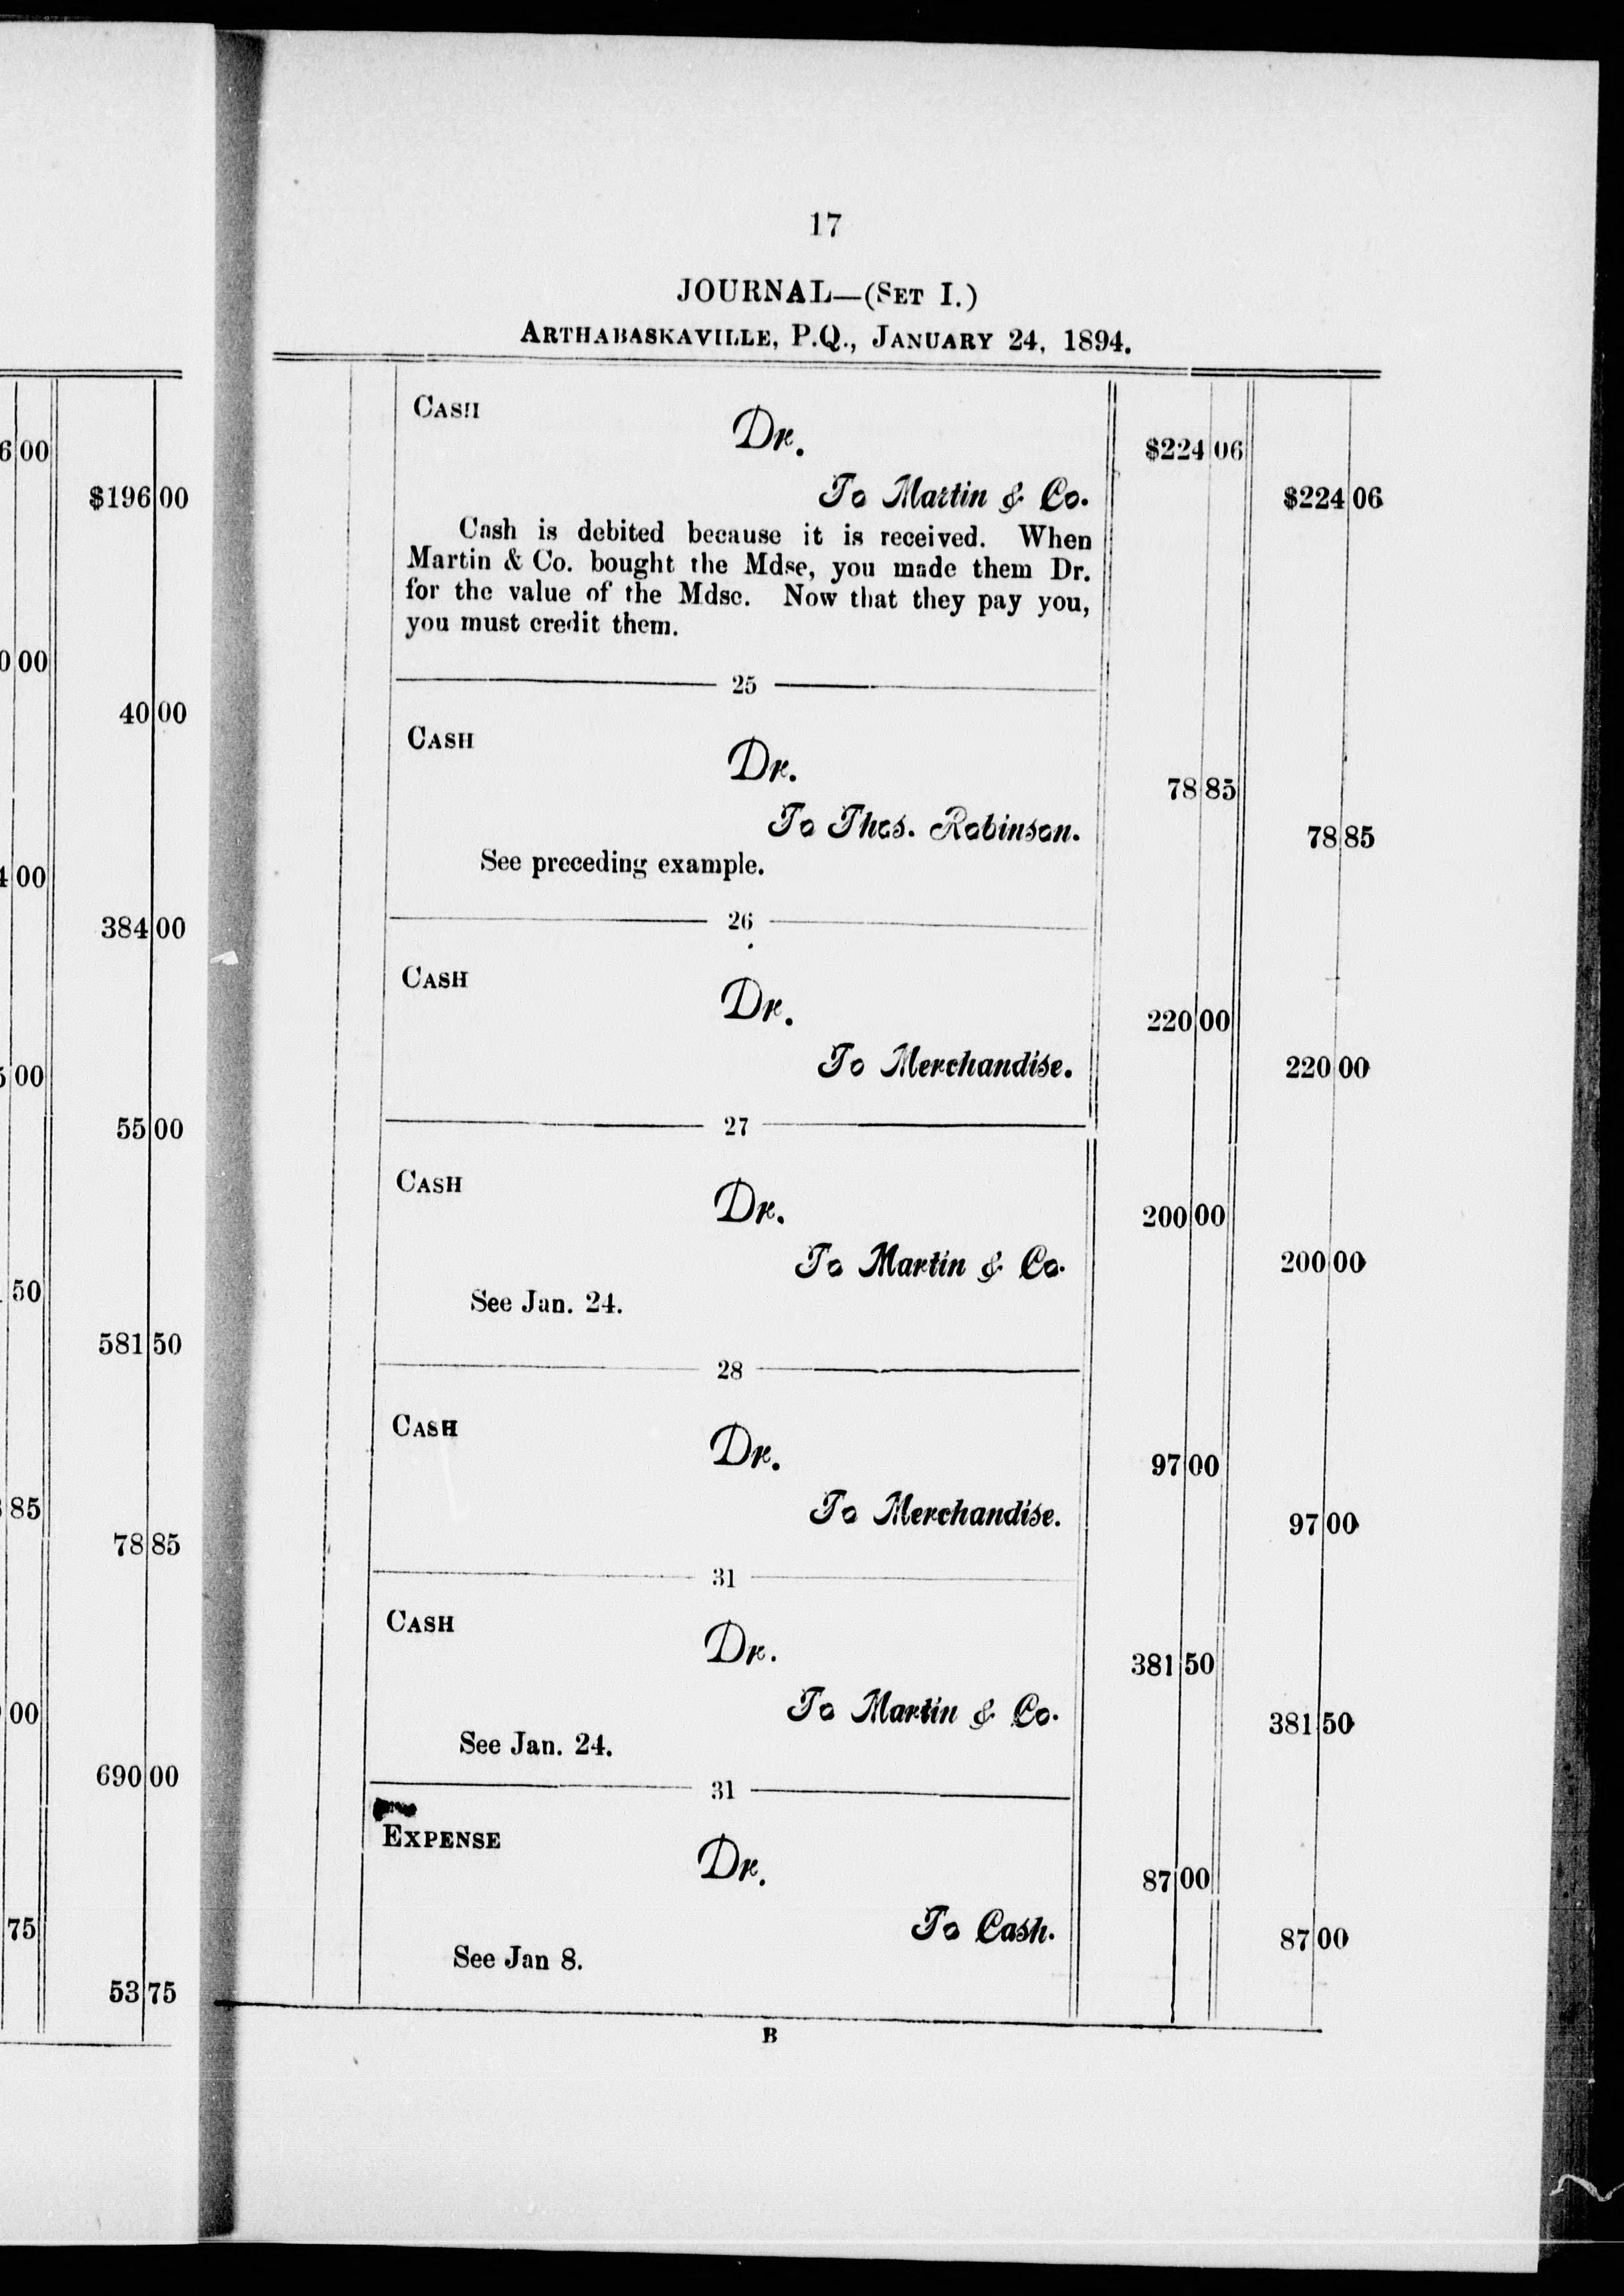 6 00
$196 00
0 00
40 00
4 00
384 00
5 00
55 00
50
581 50
85
78 85
00
690 00
75
53 75
17
JOURNAL—(SET I.)
ARTHABASKAVILLE, P.Q., JANUARY 24, 1894.
CASH
Dr. $224 06
To Martin & Co. $224 06
Cash is debited because it is received. When
Martin & Co. bought the Mdse, you made them Dr.
for the value of the Mdse. Now that they pay you,
you must credit them.
25
CASH
Dr. 78 85
To Thos. Robinson. 78 85
See preceding example.
26
CASH
Dr. 220 00
To Merchandise. 220 00
27
CASH
Dr. 200 00
To Martin & Co. 200 00
See Jan. 24.
28
CASH
Dr. 97 00
To Merchandise. 97 00
31
CASH
Dr. 381 50
To Martin & Co. 381 50
See Jan. 24.
31
EXPENSE
Dr. 87 00
To Cash. 87 00
See Jan 8.
B